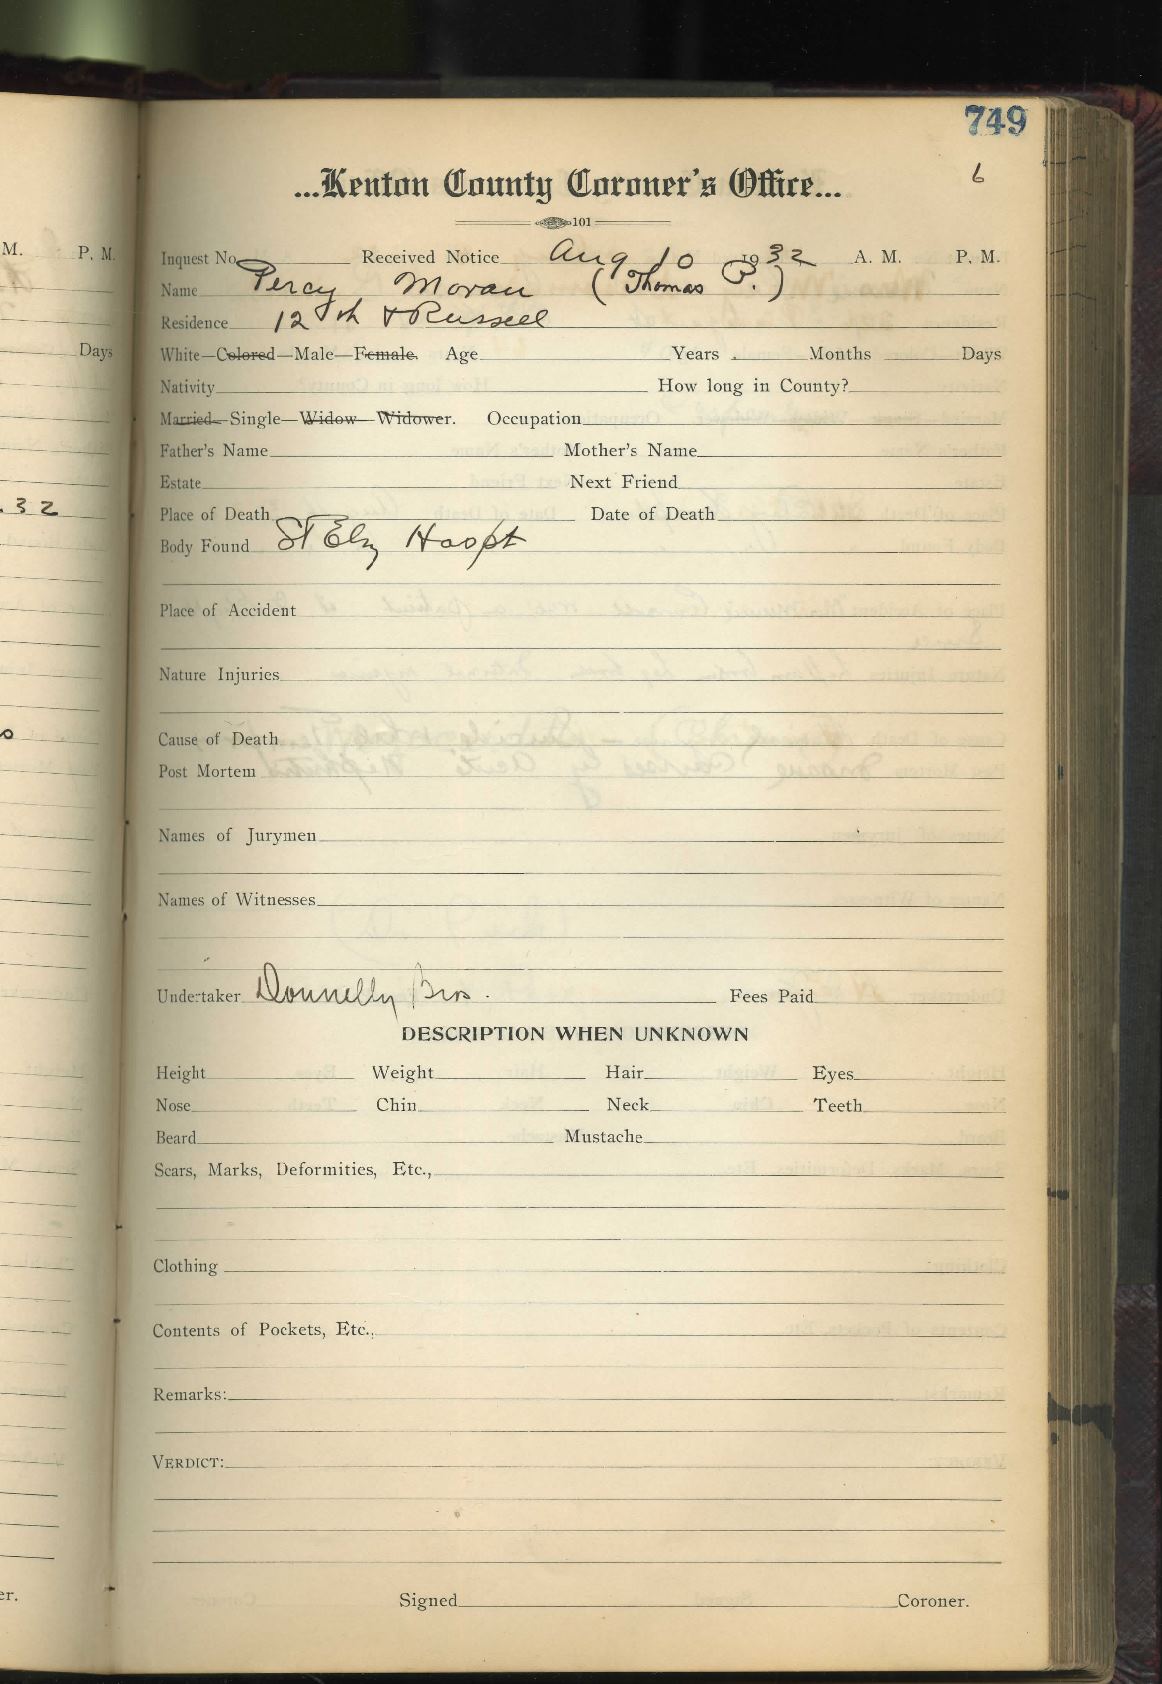 749
6
...Kenton County Coroner's Office...
101
Inquest No. Received Notice Aug 10 1932 A. M. P. M.
Name Percy Moran (Thomas P.)
Residence 12th & Russell
White—Colored—Male—Female. Age Years Months Days
Nativity How long in County?
Married—Single—Widow—Widower. Occupation
Father's Name Mother's Name
Estate Next Friend
Place of Death Date of Death
Body Found St Eliz Hospt
Place of Accident
Nature Injuries
Cause of Death
Post Mortem
Names of Jurymen
Names of Witnesses
Undertaker Donnelly Bros. Fees Paid
DESCRIPTION WHEN UNKNOWN
Height Weight Hair Eyes
Nose Chin Neck Teeth
Beard Mustache
Scars, Marks, Deformities, Etc.,
Clothing
Contents of Pockets, Etc.,
Remarks:
VERDICT:
Signed Coroner.
M. P. M.
Days
. 32
er.